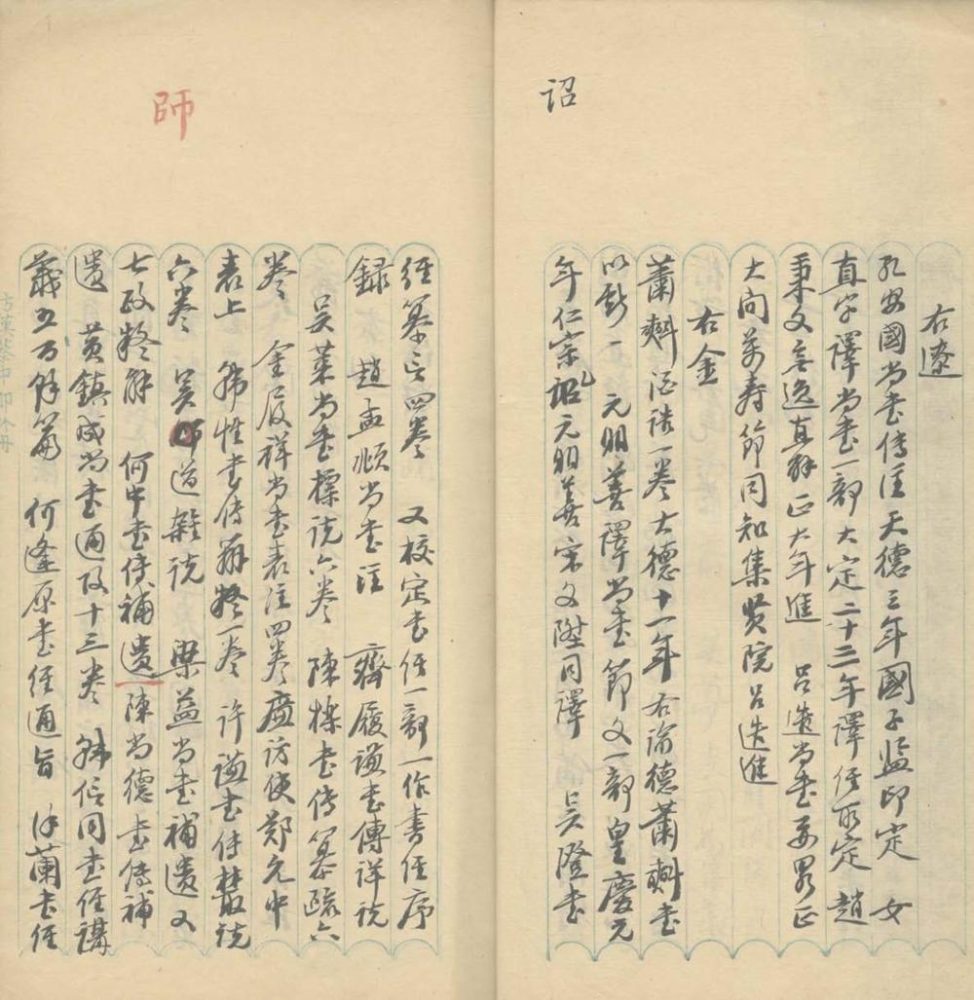 詔
右遼
孔安國尚書傳注天德三年國子監印定 女
直字譯尚書一部大定二十二年譯經所定 趙
秉文無逸直解正大年進 呂造尚書要畧正
大同萬壽節同知集賢院呂造進
右金
蕭𣂏酒誥一卷大德十一年右諭德蕭𣂏書
以獻一 元明善譯尚書節文一部皇慶元
年仁宗詔元明善宋文陞同譯 吳澄書
師
經纂言四卷 又校定書經一部一作書經序
録 趙孟頫尚書注 齊履謙書傳詳説
吳萊尚書標説六卷 陳櫟書傳纂疏六
卷 金履祥尚書表注四卷廉訪使鄭允中
表上 韓性書傳辨疑一卷 許謙書傳叢説
六卷 吳師道雜説 梁益尚書補遺又
七政疑解 何中書傳補遺 陳尚德書傳補
遺 黃鎮成尚書通攷十三卷 韓信同書經講
義五万餘篇 何逢原書經通旨 俆蘭書經